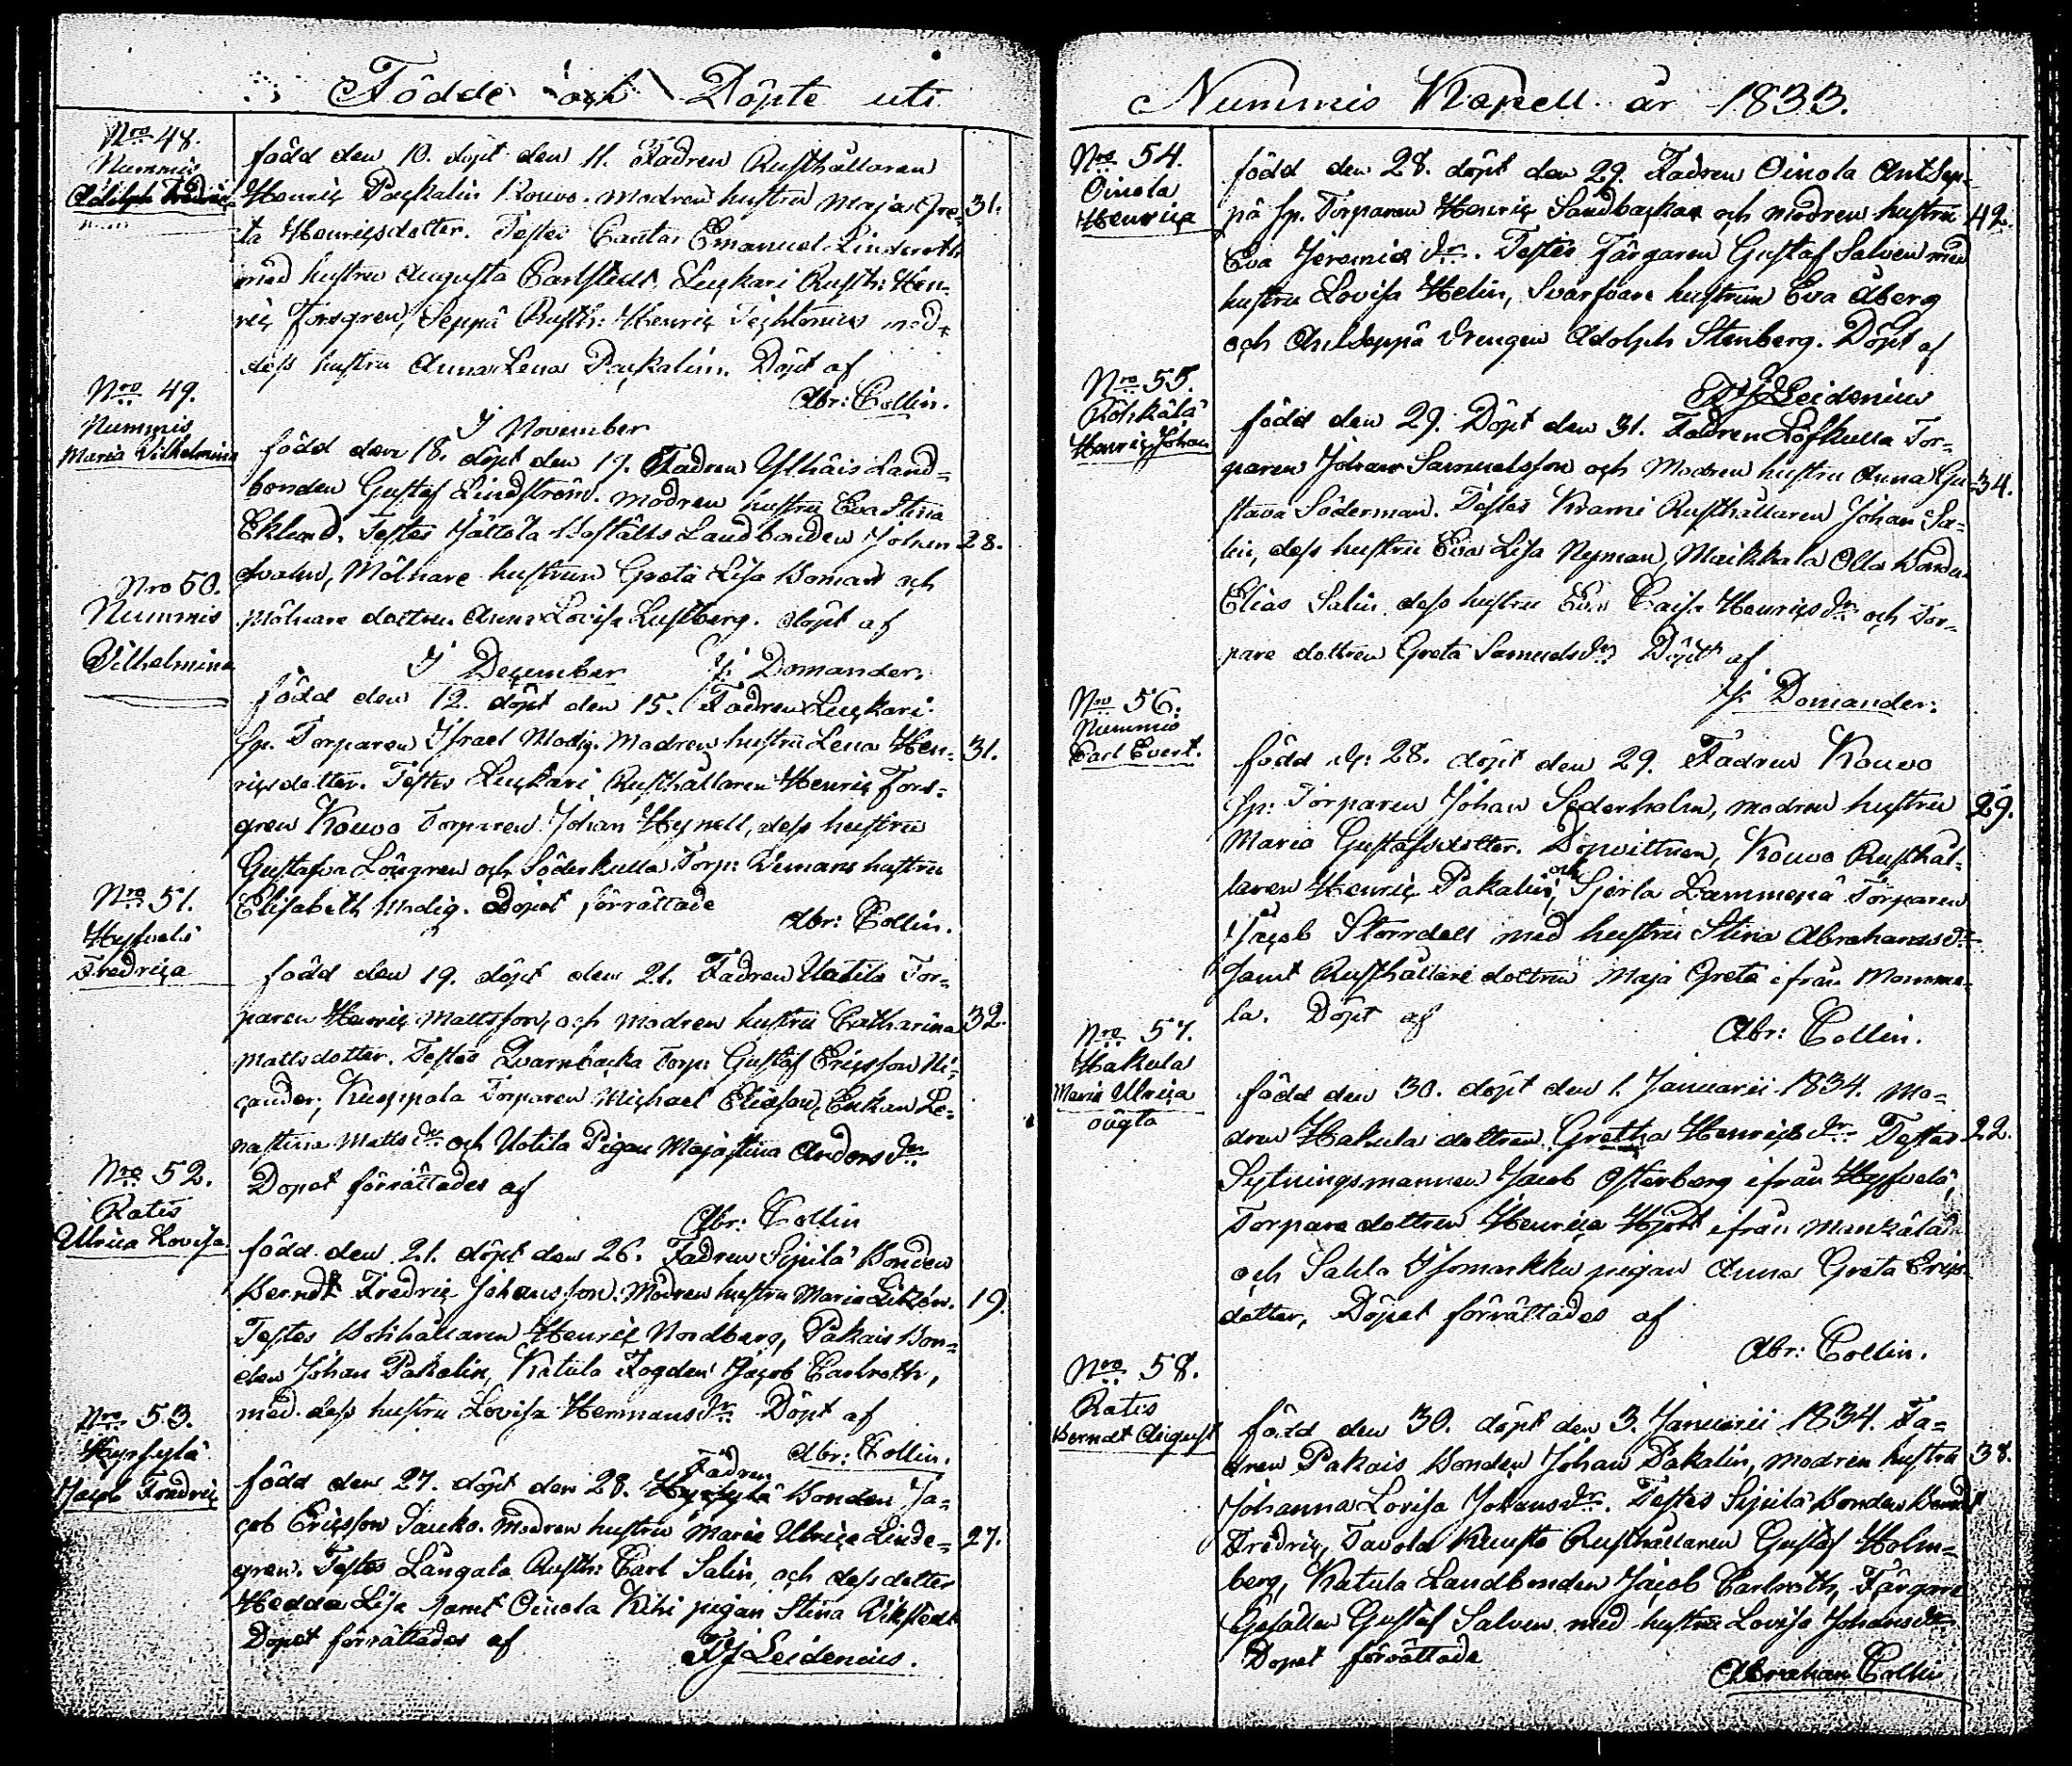 Födde och Döpte uti
Nro 48.
Nummis
Adolph Fredric
född den 10. döpt den 11. Fadren Rusthållaren
Henric Packalin Kouvo. Modren hustru Maja Gre- 31.
ta Henricsdotter. Testes Cantor Emanuel Linderoth
med hustru Augusta Carlstedt, Luckari Rusth: Hen-
ric Forsgren, Seppä Rusth: Henric Techtonius med
dess hustru Anna Lena Packalin. Döpt af
Abr: Collin.
Nro 49.
Nummis
Maria Vilhelmina
I November
född den 18. döpt den 19. Fadren Ylhäis Land-
bonden Gustaf Lindström. Modren hustru Eva Stina
Eklund. Testes Jättölä Boställs Landbonden Johan 28.
Svahn, Mölnare hustrun Greta Lisa Boman och
Mölnare dottren Anna Lovisa Lustberg. döpt af
J: Domander.
Nro 50.
Nummis
Vilhelmina
I December
född den 12. döpt den 15. Fadren Luckari
Sp. Torparen Israel Modig. Modren hustru Lena Hen- 31.
ricsdotter. Testes Luckari Rusthållaren Henric Fors-
gren Kouvo Torparen Johan Hynell, dess hustru
Gustafva Löfgren och Söderkulla Torp: Vimans hustru
Elisabeth Modig. Döpet förrättade
Abr: Collin.
Nro 51.
Hyfvelä
Fredrica
född den 19. döpt den 21. Fadren Uotila Tor-
paren Henric Mattsson, och Modren hustru Catharina 32.
Mattsdotter. Testes Qvarnbacka Torp: Gustaf Ericsson Ni-
cander, Kuoppala Torparen Michael Eliasson, Enkan Le-
nastina Matts dr. och Uotila Pigan Majastina Anders dr.
Dopet förrättades af
Abr: Collin
Nro 52.
Ratis
Ulrica Lovisa
född den 21. döpt den 26. Fadren Sipilä Bonden
Berndt Fredric Johansson. Modren hustru Maria Litzén. 19.
Testes Bolhållaren Henric Nordberg, Pakais Bon-
den Johan Pakalin, Katula Fogden Jacob Carlroth,
med dess hustru Lovisa Hermans dr. Döpt af
Abr: Collin.
Nro 53.
Hyrfsylä
Jacob Fredric
Fadren
född den 27. döpt den 28. Hyrsylä Bonden Ja-
cob Ericsson Tauko. Modren hustru Maria Ulrica Linde- 27.
gren. Testes Långala Rusth: Carl Salin, och dess dotter
Hedda Lisa samt Oinola Kihi pigan Stina Vikstedt
Dopet förrättades af
F J Leidenius.
Nummis Kapell år 1833.
Nro 54.
Oinola
Henrica
född den 28. döpt den 29. Fadren Oinola AntSep-
pä Sp. Torparen Henric Sandbacka och modren hustru 42.
Eva Jeremias dr. Testes Färgaren Gustaf Salven med
hustru Lovisa Helin, Svarfvare hustrun Eva Åberg
och AntSeppä Drengen Adolph Stenberg. Döpt af
F J Leidenius
Nro 55.
Röhkälä
Henric Johan
född den 29. Döpt den 31. Fadren Löfkulla Tor-
paren Johan Samuelsson och Modren hustru Anna Gu- 34.
stava Söderman. Testes Kvarni Rusthållaren Johan Sa-
lin, dess hustru Eva Lisa Nyman, Meikkala Olla Bonden
Elias Salin, dess hustru Eva Caisa Henrics dr. och Tor-
pare dottren Greta Samuels dr. Döpt af
J: Domander.
Nro 56.
Nummis
Carl Evert.
född d: 28. döpt den 29. Fadren Kouvo
Sp: Torparen Johan Sederholm, modren hustru 29.
Maria Gustafsdotter. Dopvittnen, Kouvo Rusthål-
laren Henric Pakalin, och Sjerla Lammepä Torparen
Jacob Storrdell med hustru Stina Abrahams dr.
samt Rusthållare dottren Maja Greta ifrån Momme-
la. Döpt af
Abr: Collin.
Nro 57.
Hakula
Maria Ulrica
oägta
född den 30. döpt den 1. Januarii 1834. Mo-
dren Hakula dottren Gretha Henrics dr. Testes 22.
Sytningsmannen Jacob Österberg ifrån Hyfvelä,
Torpare dottren Henrica Hjort ifrån Menkälä
och Sahla Isomarkku pigan Anna Greta Erics-
dotter, Döpet förrättades af
Abr: Collin.
Nro 58.
Ratis
Berndt August
född den 30. döpt den 3. Januarii 1834. Fa-
dren Pakais Bonden Johan Pakalin, modren hustru 38.
Johanna Lovisa Johans dr. Testes Sipilä Bonden Berndt
Fredric, Tavola Knuste Rusthållaren Gustaf Holm-
berg, Katula Landbonden Jacob Carlroth, Färgare
Gesällen Gustaf Salven med hustru Lovisa Johans dr.
Dopet förrättade
Abraham Collin